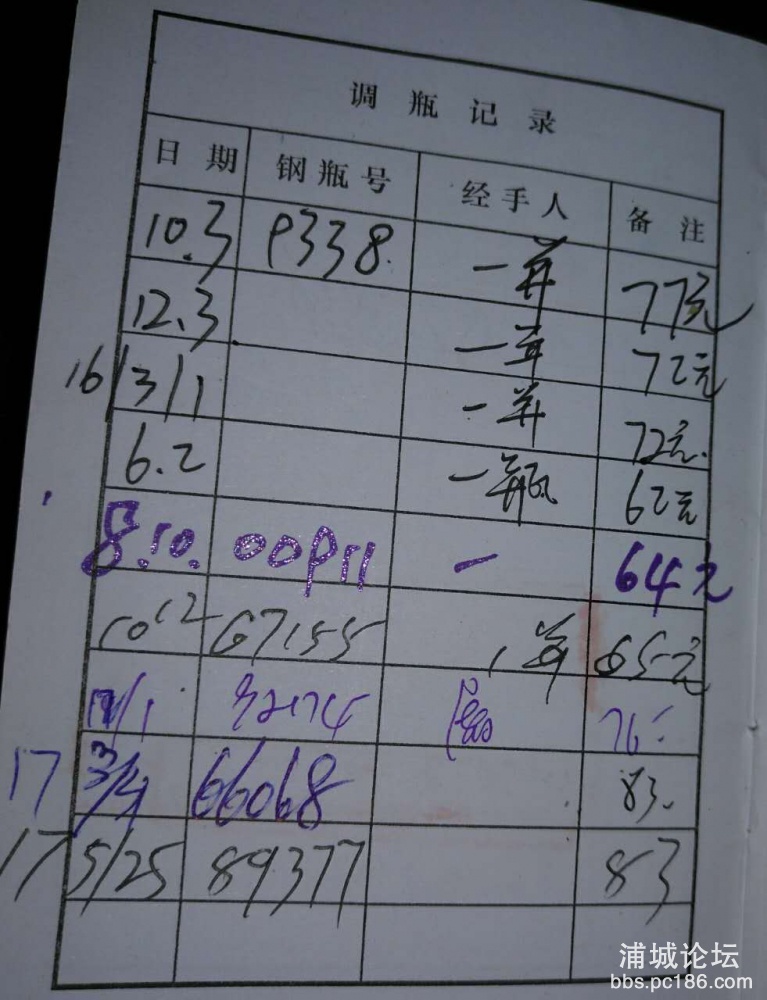 调瓶记录
日期 钢瓶号 经手人 备注
10.3 P338. 一并 77元
12.3 一并 72元
16/3/1 一并 72元.
6.2 一瓶 62元
8.10. 00P11 一 64元
10 12 67155 1并 65元
76
17 3/4 66068 83.
17 5/25 89377 83
浦城论坛
bbs.pc186.com